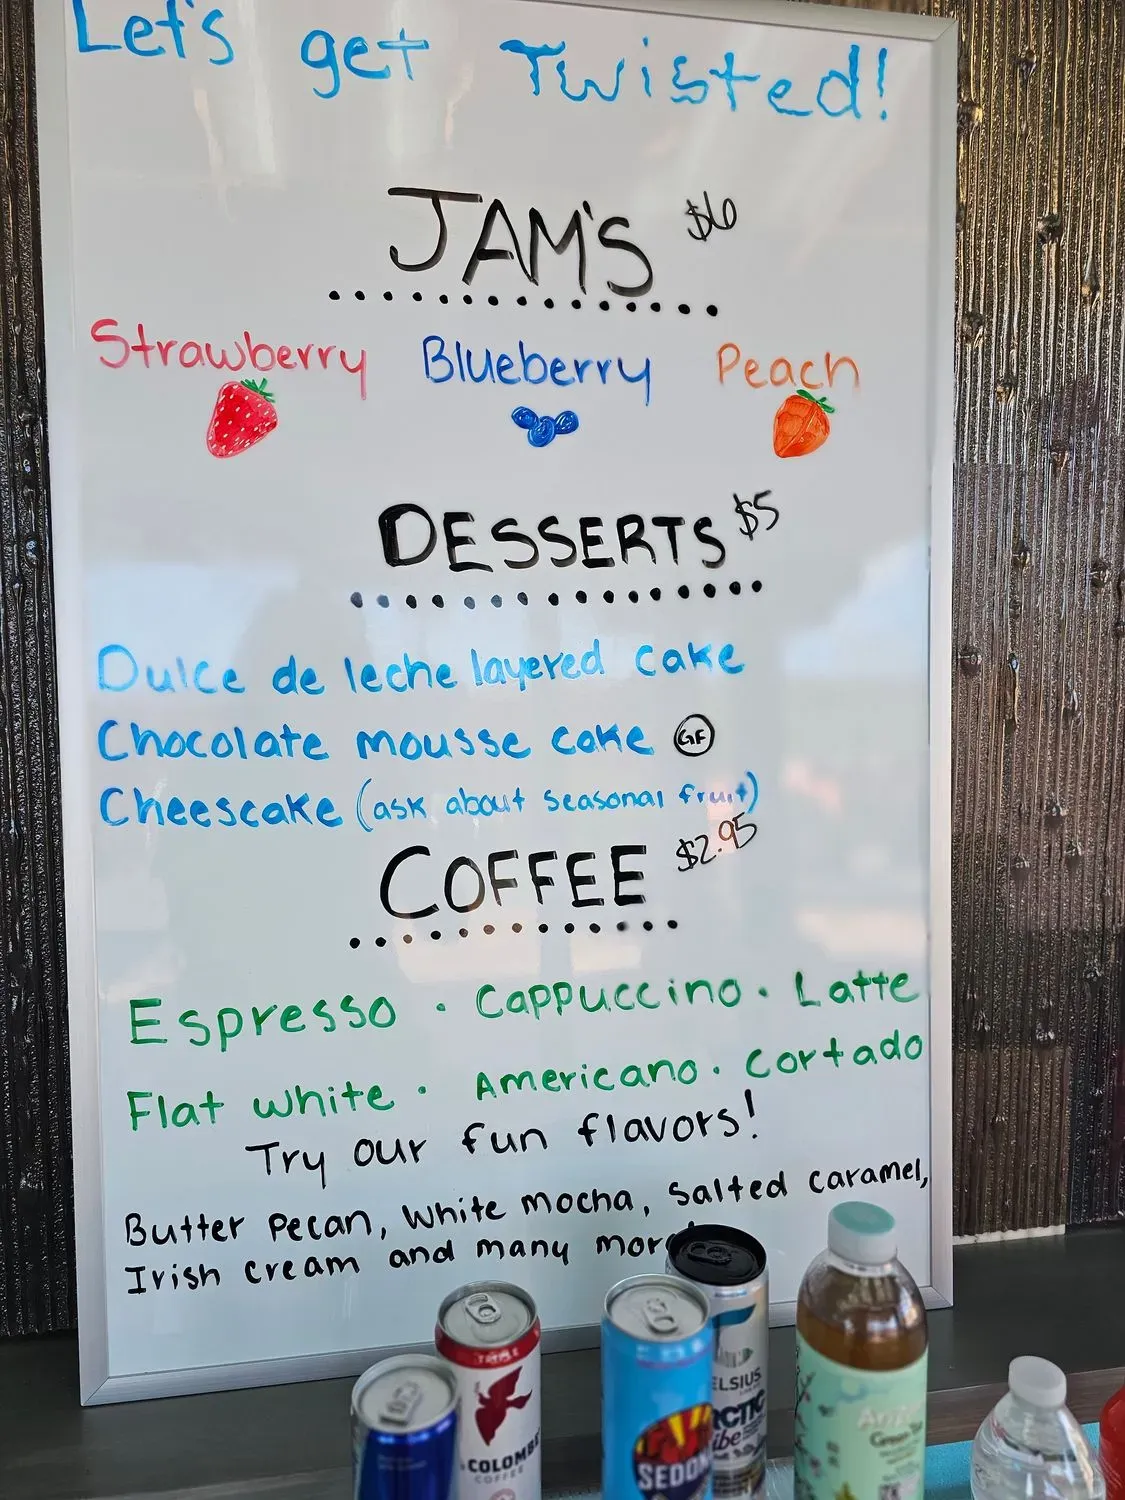 Let's get Twisted!
JAM'S $6
Strawberry Blueberry Peach
DESSERTS $5
Dulce de leche layered cake
Chocolate mousse cake GF
Cheescake (ask about seasonal fruit)
COFFEE $2.95
Espresso · Cappuccino · Latte
Flat white · Americano · Cortado
Try our fun flavors!
Butter Pecan, White mocha, Salted caramel,
Irish cream and many more
TRIPLE
COLOMBE
COFFEE
SEDONA
ELSIUS
ARCTIC
Vibe
Arizona
Green Tea